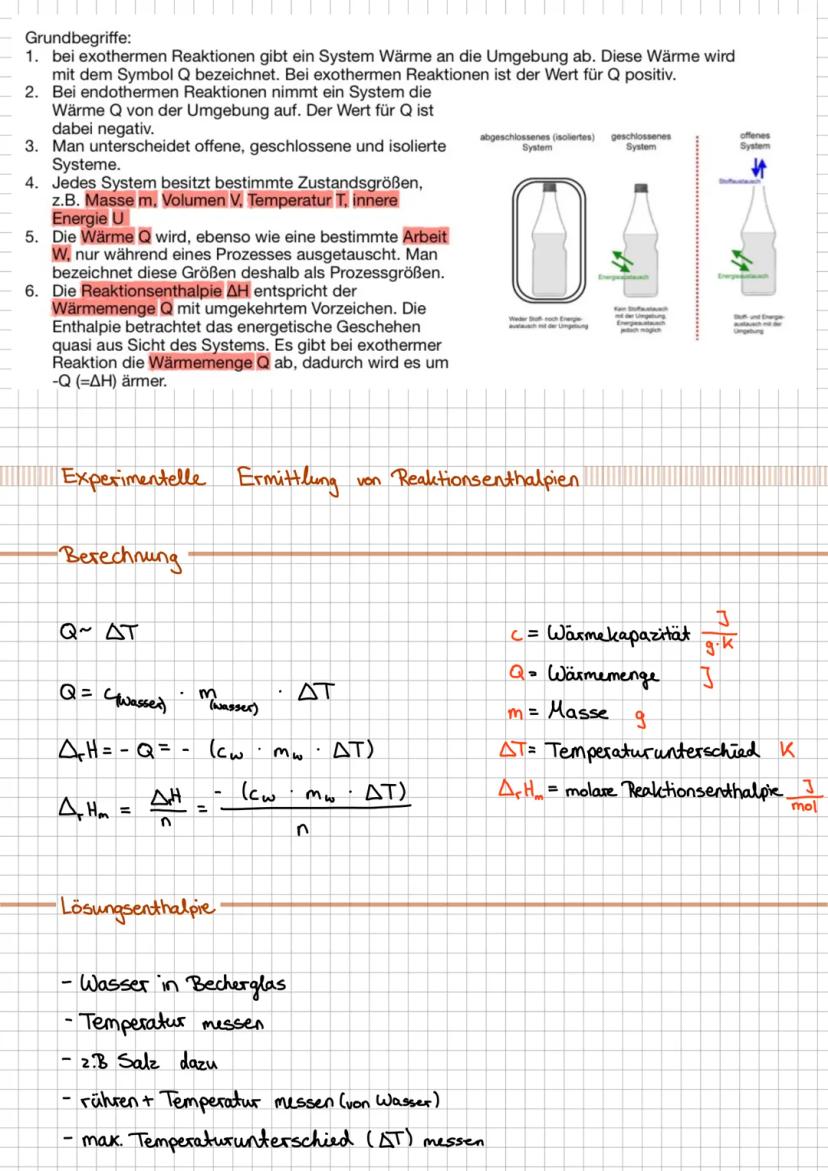 Grundbegriffe:
1. bei exothermen Reaktionen gibt ein System Wärme an die Umgebung ab. Diese Wärme wird
mit dem Symbol Q bezeichnet. Bei exothermen Reaktionen ist der Wert für Q positiv.
2. Bei endothermen Reaktionen nimmt ein System die
Wärme Q von der Umgebung auf. Der Wert für Q ist
dabei negativ.
3. Man unterscheidet offene, geschlossene und isolierte
Systeme.
4. Jedes System besitzt bestimmte Zustandsgrößen,
z.B. Masse m, Volumen V, Temperatur T, innere
Energie U
5. Die Wärme Q wird, ebenso wie eine bestimmte Arbeit
W, nur während eines Prozesses ausgetauscht. Man
bezeichnet diese Größen deshalb als Prozessgrößen.
6. Die Reaktionsenthalpie ΔH entspricht der
Wärmemenge Q mit umgekehrtem Vorzeichen. Die
Enthalpie betrachtet das energetische Geschehen
quasi aus Sicht des Systems. Es gibt bei exothermer
Reaktion die Wärmemenge Q ab, dadurch wird es um
-Q (=ΔH) ärmer.
abgeschlossenes (isoliertes)
System
Weder Stoff- noch Energie-
austausch mit der Umgebung
geschlossenes
System
Energieaustausch
Kein Stoffaustausch
mit der Umgebung,
Energieaustausch
jedoch möglich
offenes
System
Stoffaustausch
Energieaustausch
Stoff- und Energie-
austausch mit der
Umgebung
Experimentelle Ermittlung von Reaktionsenthalpien
Berechnung
Q~ ΔT
Q = c(Wasser) · m(Wasser) · ΔT
ΔrH = - Q = - (cw · mw · ΔT)
ΔrHm = ΔH/n = - (cw · mw · ΔT)/n
c = Wärmekapazität J/g·K
Q = Wärmemenge J
m = Masse g
ΔT = Temperaturunterschied K
ΔrHm = molare Reaktionsenthalpie J/mol
Lösungsenthalpie
- Wasser in Becherglas
- Temperatur messen
- z.B Salz dazu
- rühren + Temperatur messen (von Wasser)
- max. Temperaturunterschied (ΔT) messen